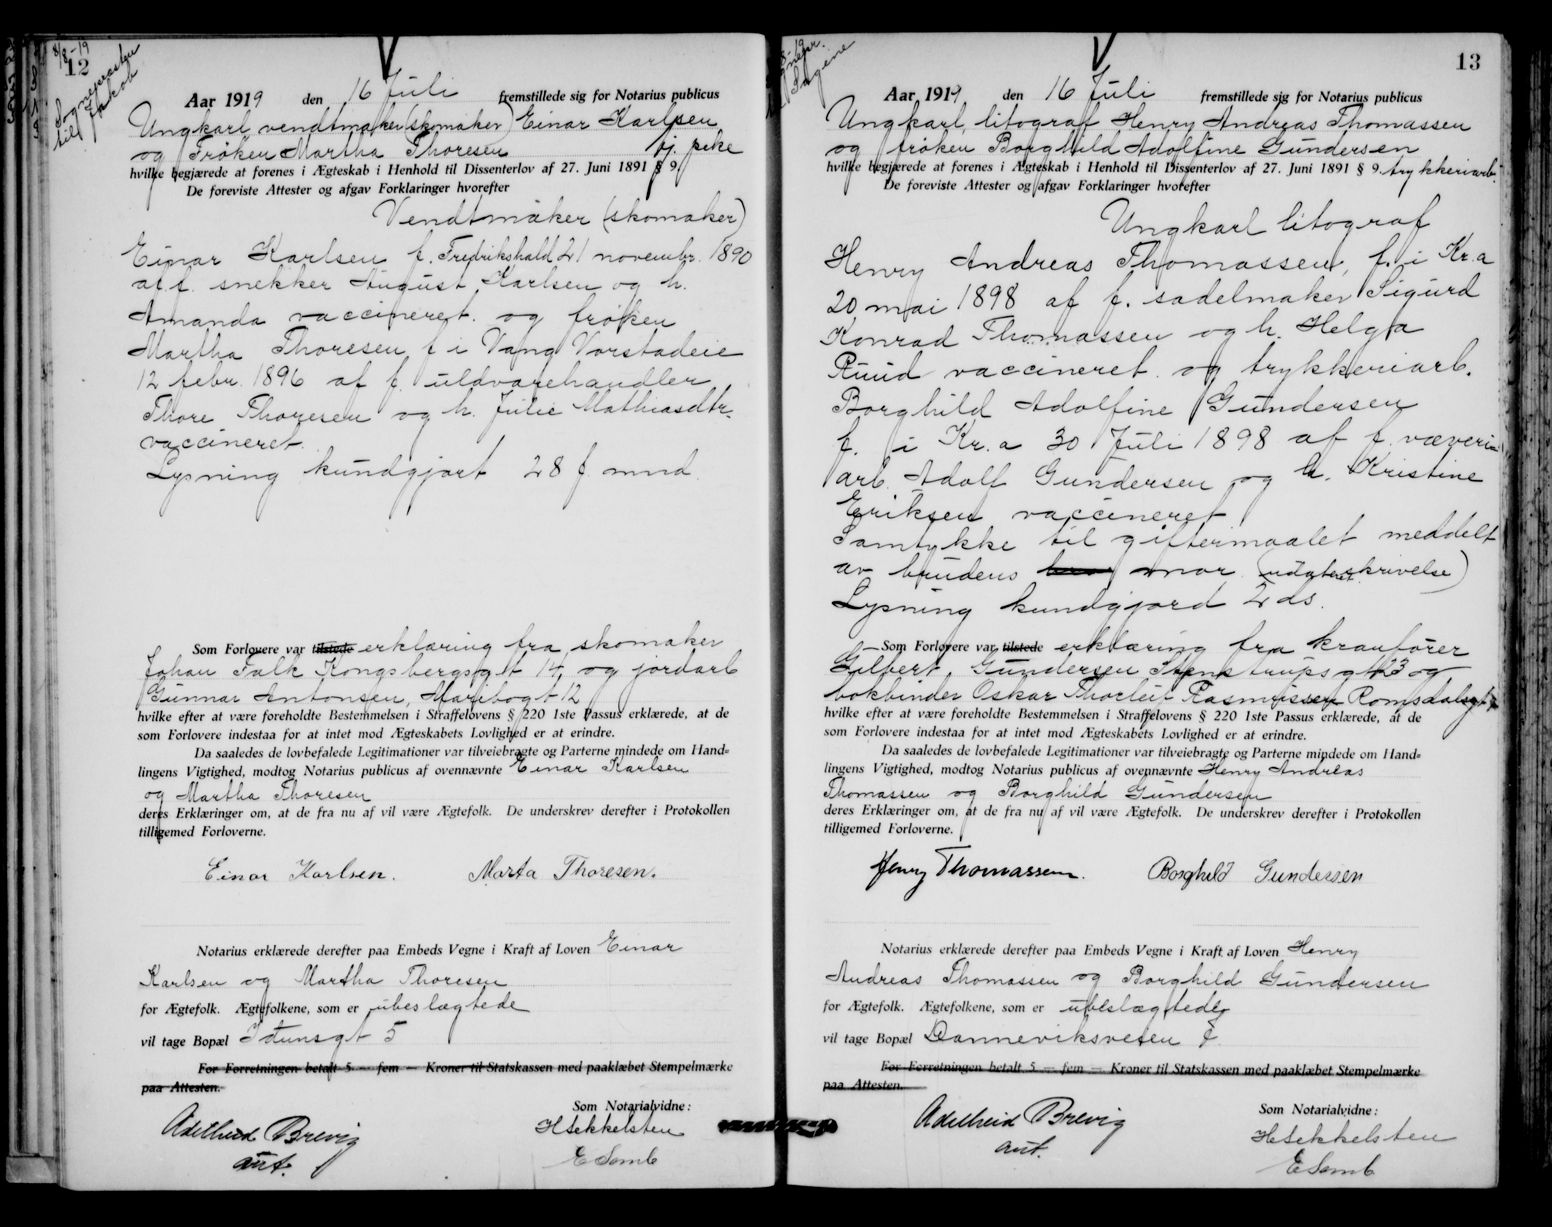 12
8/8-19
Sognepresten
til Jakob
Aar 1919 den 16 Juli fremstillede sig for Notarius publicus
Ungkarl vendtmaker (skomaker) Einar Karlsen
og Frøken Martha Thoresen tj. pike
hvilke begjærede at forenes i Ægteskab i Henhold til Dissenterlov af 27. Juni 1891 § 9.
De foreviste Attester og afgav Forklaringer hvorefter
Vendtmaker (skomaker)
Einar Karlsen f. Fredrikshald 21 novembr. 1890
af f. snekker August Karlsen og h.
Amanda vaccineret. og frøken
Martha Thoresen f. i Vang Vorstadeie
12 febr. 1896 af f. uldvarehandler
Thore Thoresen og h. Julie Mathiasdtr.
vaccineret.
Lysning kundgjort 28 f. mnd.
Som Forlovere var tilstede erklæring fra skomaker
Johan Falk Kongsbergsgt 14, og jordarb
Gunnar Antonsen, Maribogt 12
hvilke efter at være foreholdte Bestemmelsen i Straffelovens § 220 1ste Passus erklærede, at de
som Forlovere indestaa for at intet mod Ægteskabets Lovlighed er at erindre.
Da saaledes de lovbefalede Legitimationer var tilveiebragte og Parterne mindede om Hand-
lingens Vigtighed, modtog Notarius publicus af ovennævnte Einar Karlsen
og Martha Thoresen
deres Erklæringer om, at de fra nu af vil være Ægtefolk. De underskrev derefter i Protokollen
tilligemed Forloverne.
Einar Karlsen. Marta Thoresen.
Notarius erklærede derefter paa Embeds Vegne i Kraft af Loven Einar
Karlsen og Martha Thoresen
for Ægtefolk. Ægtefolkene, som er ubeslægtede
vil tage Bopæl Idunsgt 5
For Forretningen betalt 5 — fem — Kroner til Statskassen med paaklæbet Stempelmærke
paa Attesten.
Som Notarialvidne:
Adelheid Brevig HSekkelsten
aut. E Samb
13
Sagene
Aar 1919 den 16 Juli fremstillede sig for Notarius publicus
Ungkarl, litograf Henry Andreas Thomassen
og frøken Borghild Adolfine Gundersen
hvilke begjærede at forenes i Ægteskab i Henhold til Dissenterlov af 27. Juni 1891 § 9. trykkeriarb.
De foreviste Attester og afgav Forklaringer hvorefter
Ungkarl litograf
Henry Andreas Thomassen, f. i Kr.a
20 mai 1898 af f. sadelmaker Sigurd
Konrad Thomassen og h. Helga
Ruud vaccineret. og trykkeriarb.
Borghild Adolfine Gundersen
f. i Kr.a 30 Juli 1898 af f. væveri-
arb. Adolf Gundersen og h. Kristine
Eriksen vaccineret
Samtykke til giftermaalet meddelt
av brudens mor (udatert skrivelse)
Lysning kundgjord 2 ds.
Som Forlovere var tilstede erklæring fra kranfører
Gilbert Gundersen Stenstrupsgt 23 og
bokbinder Oskar Thorleif Rasmussen Romsdalsgt
hvilke efter at være foreholdte Bestemmelsen i Straffelovens § 220 1ste Passus erklærede, at de
som Forlovere indestaa for at intet mod Ægteskabets Lovlighed er at erindre.
Da saaledes de lovbefalede Legitimationer var tilveiebragte og Parterne mindede om Hand-
lingens Vigtighed, modtog Notarius publicus af ovennævnte Henry Andreas
Thomassen og Borghild Gundersen
deres Erklæringer om, at de fra nu af vil være Ægtefolk. De underskrev derefter i Protokollen
tilligemed Forloverne.
Henry Thomassen. Borghild Gundersen
Notarius erklærede derefter paa Embeds Vegne i Kraft af Loven Henry
Andreas Thomassen og Borghild Gundersen
for Ægtefolk. Ægtefolkene, som er ubeslægtede
vil tage Bopæl Danneviksveien
For Forretningen betalt 5 — fem — Kroner til Statskassen med paaklæbet Stempelmærke
paa Attesten.
Som Notarialvidne:
Adelheid Brevig HSekkelsten
aut. E Samb